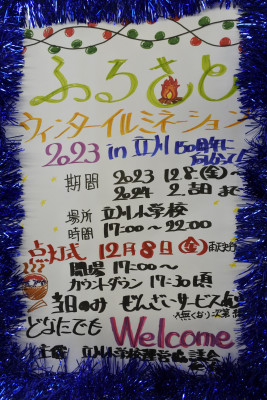 ふるさと
ウィンターイルミネーション
2023 in 立川 150周年に
期間 2023 12/8(金)〜
2024 2 まで
場所 立川小学校
時間 17:00〜22:00
点灯式 12月8日(金)
開場 17:00〜
カウントダウン 17:30頃
当日のみ ぜんざいサービス
どなたでも Welcome
主催 立川小学校運営協議会